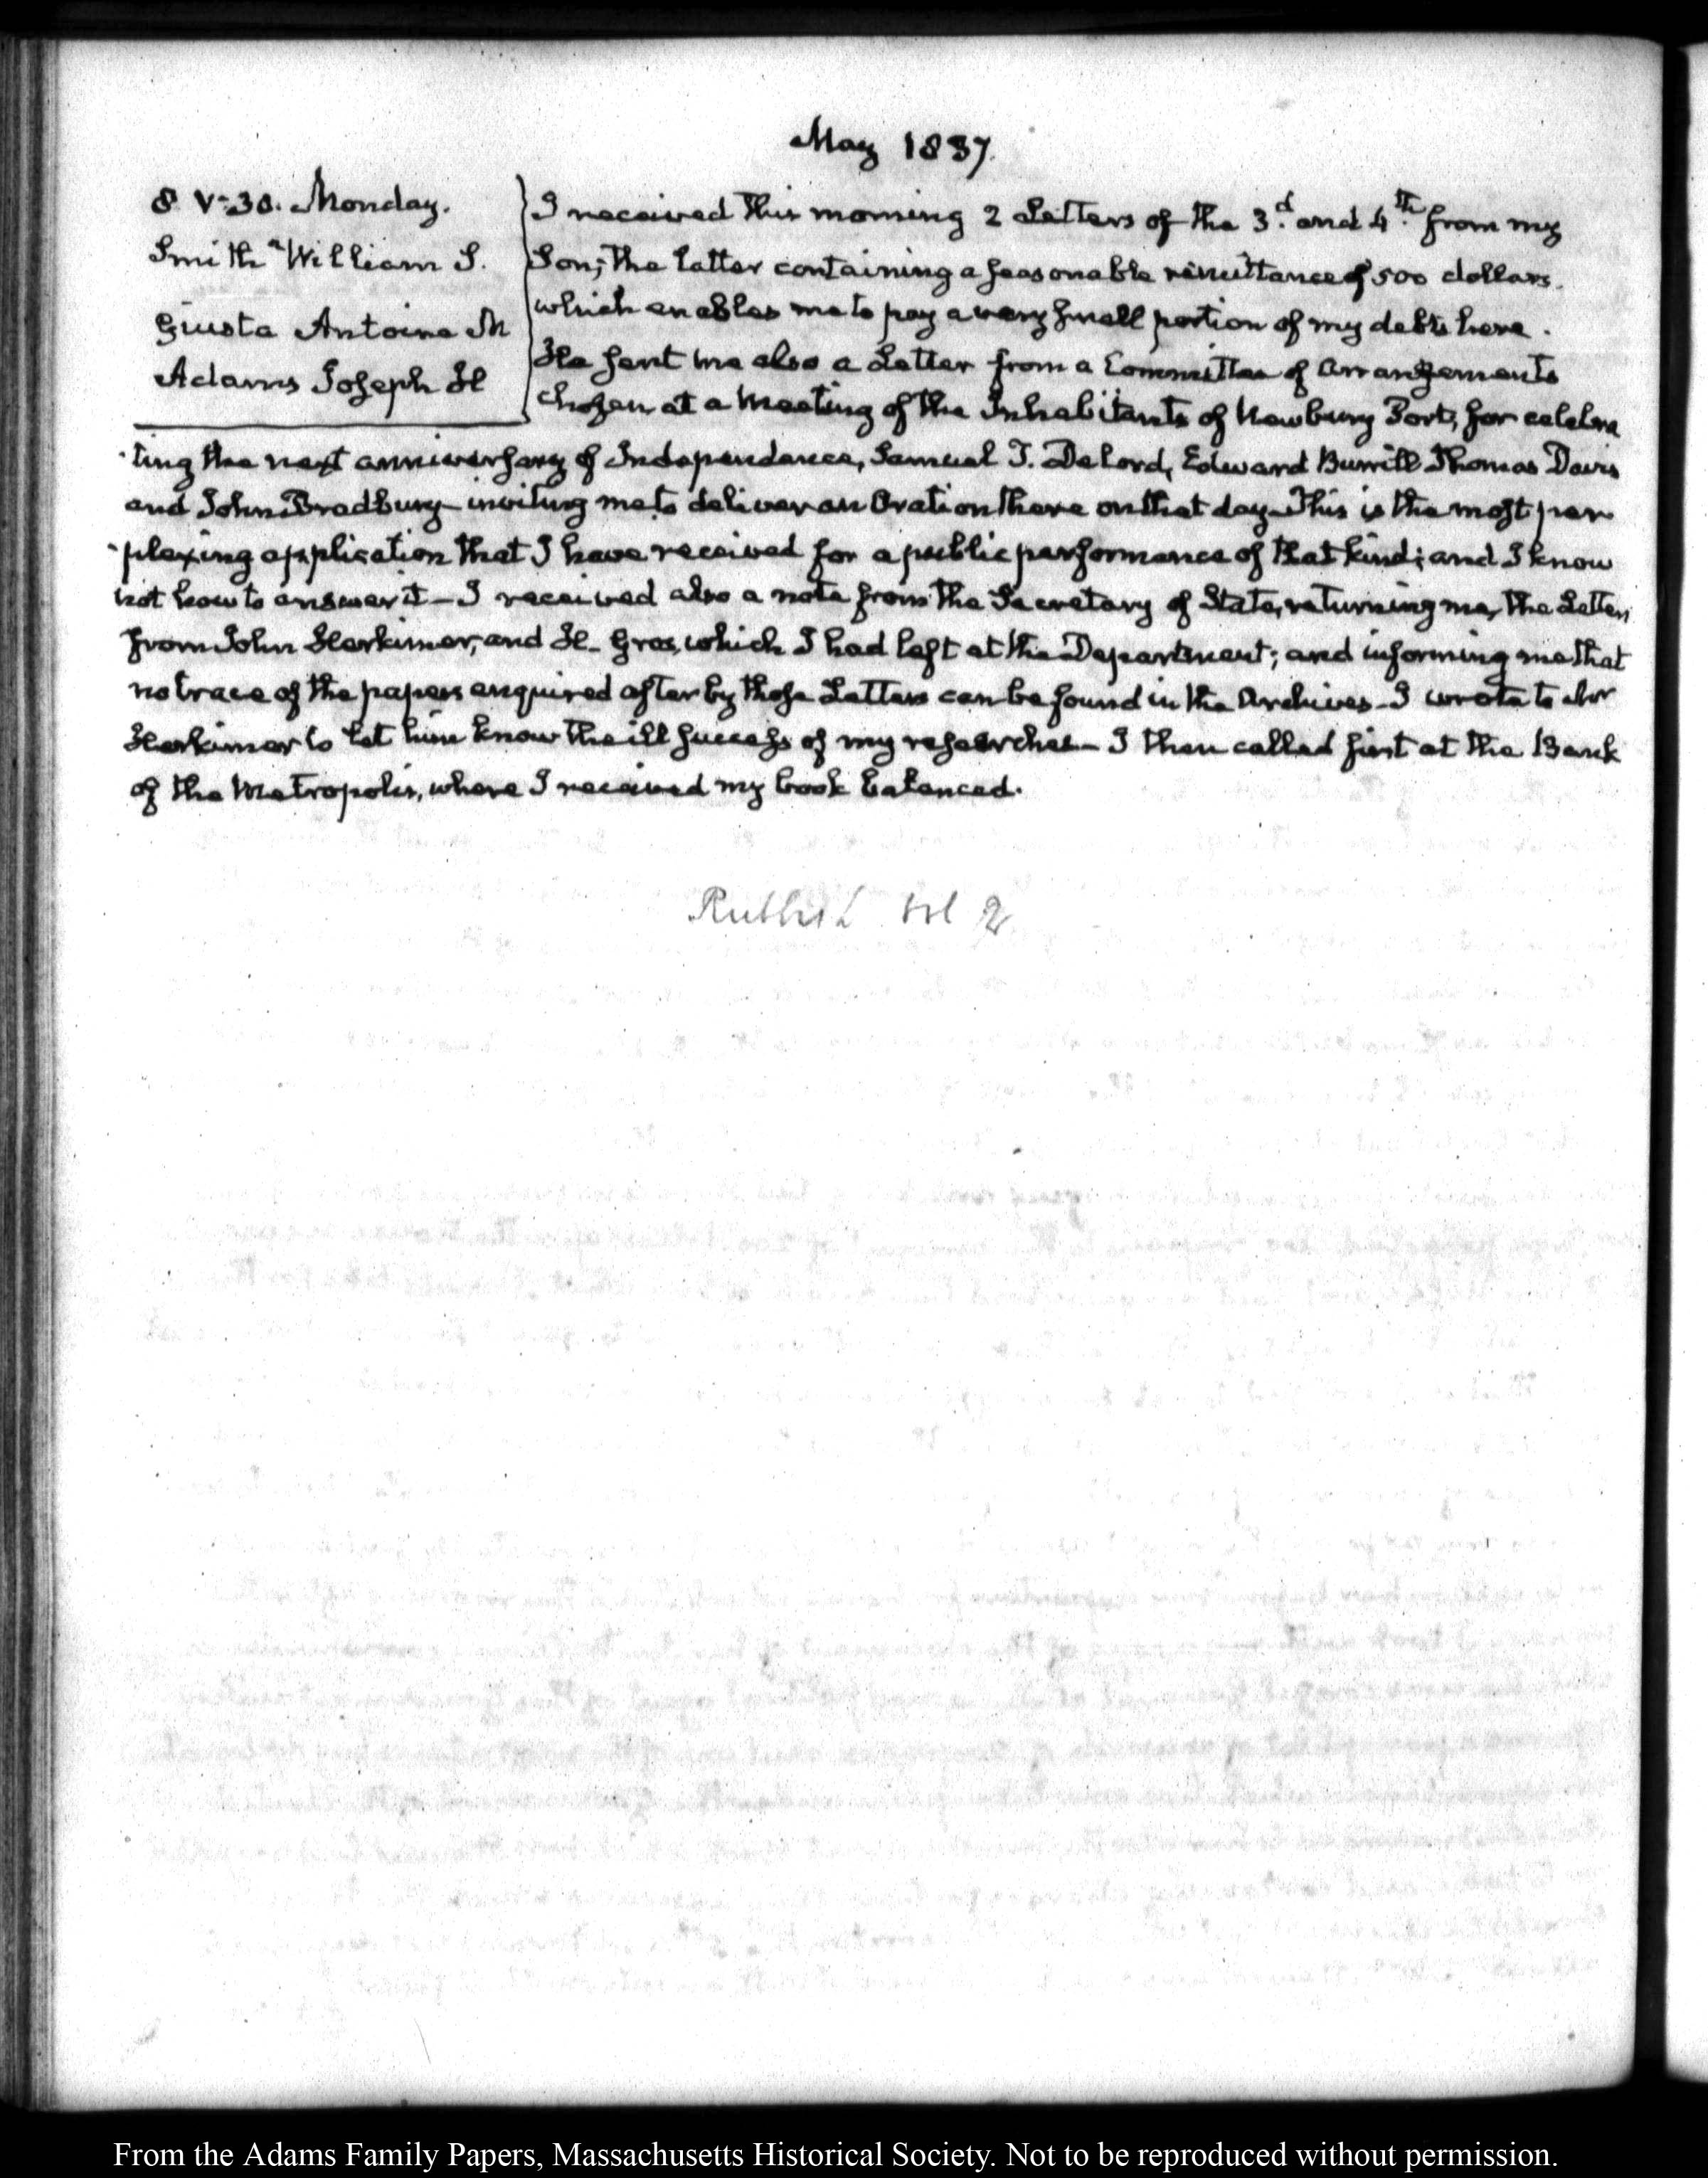 May 1837.
8. V:30. Monday.
Smith William S.
Giusta Antoine M
Adams Joseph H
I received this morning 2 Letters of the 3.d and 4.th from my
Son; the latter containing a seasonable remittance of 500 dollars.
which enables me to pay a very small portion of my debts here.
He sent me also a Letter from a Committee of Arrangements
chosen at a Meeting of the Inhabitants of Newbury Port, for celebra
ting the next anniversary of Independence, Samuel T. DeFord, Edward Burrill Thomas Davis
and John Bradbury inviting me to deliver an Oration there on that day—This is the most per
plexing application that I have received for a public performance of that kind; and I know
not how to answer it—I received also a note from the Secretary of State, returning me, the Letters
from John Herkimer, and H. Gros, which I had left at the Department; and informing me that
no trace of the papers enquired after by those Letters can be found in the Archives—I wrote to Mr
Herkimer to let him know the ill success of my researches—I then called first at the Bank
of the Metropolis, where I received my book balanced.
Rubbish vol 2
From the Adams Family Papers, Massachusetts Historical Society. Not to be reproduced without permission.